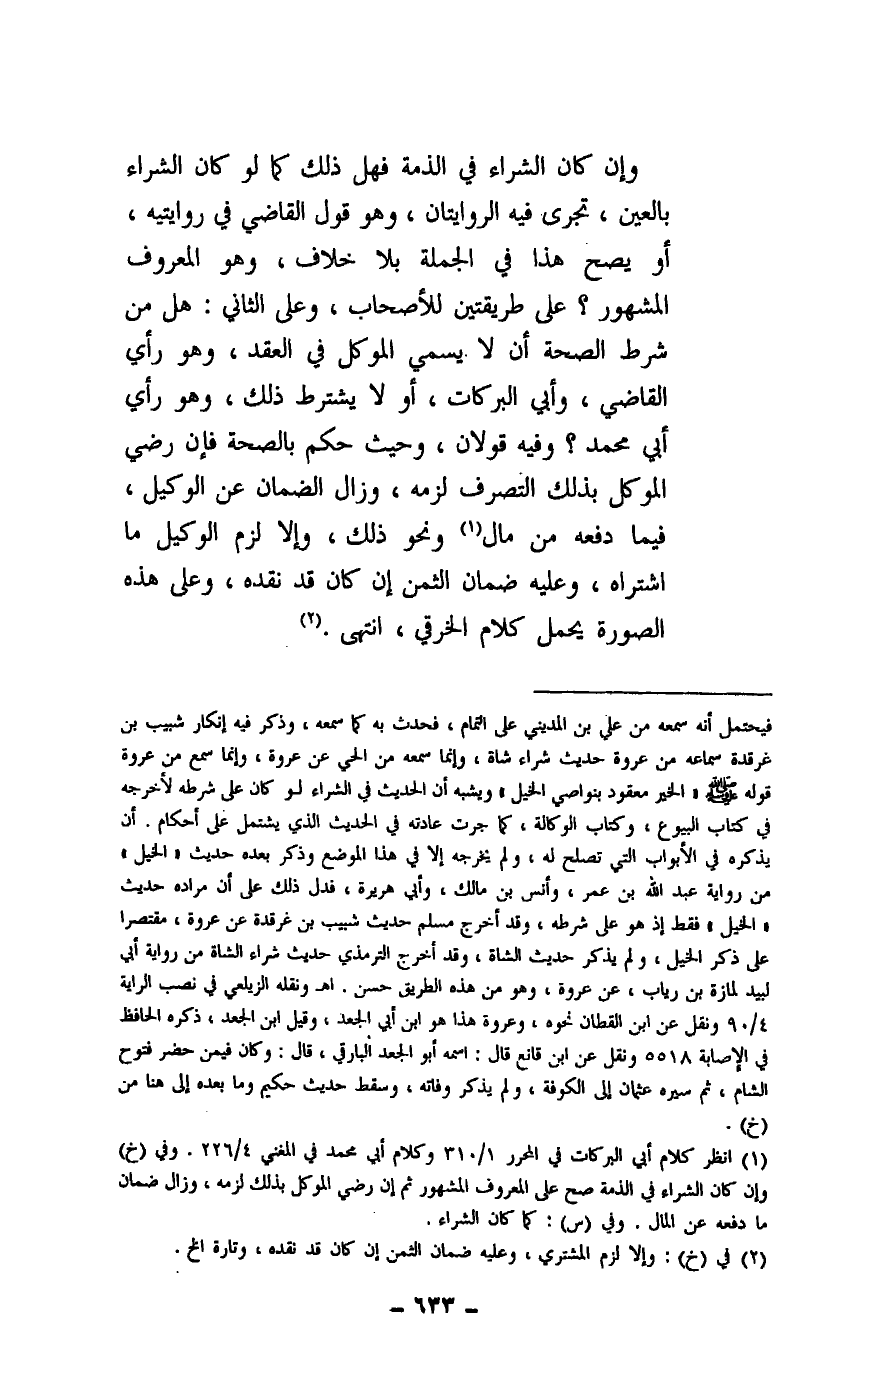 وإن كان الشراء في الذمة فهل ذلك كما لو كان الشراء
بالعين ، تجرى فيه الروايتان ، وهو قول القاضي في روايتيه ،
أو يصح هذا في الجملة بلا خلاف ، وهو المعروف
المشهور ؟ على طريقتين للأصحاب ، وعلى الثاني : هل من
شرط الصحة أن لا يسمي الموكل في العقد ، وهو رأي
القاضي ، وأبي البركات ، أو لا يشترط ذلك ، وهو رأي
أبي محمد ؟ وفيه قولان ، وحيث حكم بالصحة فإن رضي
الموكل بذلك التصرف لزمه ، وزال الضمان عن الوكيل ،
فيما دفعه من مال(١) ونحو ذلك ، وإلا لزم الوكيل ما
اشتراه ، وعليه ضمان الثمن إن كان قد نقده ، وعلى هذه
الصورة يحمل كلام الخرقي ، انتهى .(٢)
فيحتمل أنه سمعه من علي بن المديني على التمام ، فحدث به كما سمعه ، وذكر فيه إنكار شبيب بن
غرقدة سماعه من عروة حديث شراء شاة ، وإنما سمعه من الحي عن عروة ، وإنما سمع من عروة
قوله ﷺ « الخير معقود بنواصي الخيل » ويشبه أن الحديث في الشراء لـو كان على شرطه لأخرجه
في كتاب البيوع ، وكتاب الوكالة ، كما جرت عادته في الحديث الذي يشتمل على أحكام . أن
يذكره في الأبواب التي تصلح له ، ولم يخرجه إلا في هذا الموضع وذكر بعده حديث « الخيل »
من رواية عبد الله بن عمر ، وأنس بن مالك ، وأبي هريرة ، فدل ذلك على أن مراده حديث
« الخيل » فقط إذ هو على شرطه ، وقد أخرج مسلم حديث شبيب بن غرقدة عن عروة ، مقتصرا
على ذكر الخيل ، ولم يذكر حديث الشاة ، وقد أخرج الترمذي حديث شراء الشاة من رواية أبي
لبيد لمازة بن رباب ، عن عروة ، وهو من هذه الطريق حسن . اهـ ونقله الزيلعي في نصب الراية
٩٠/٤ ونقل عن ابن القطان نحوه ، وعروة هذا هو ابن أبي الجعد ، وقيل ابن الجعد ، ذكره الحافظ
في الإصابة ٥٥١٨ ونقل عن ابن قانع قال : اسمه أبو الجعد البارقي ، قال : وكان فيمن حضر فتوح
الشام ، ثم سيره عثمان إلى الكوفة ، ولم يذكر وفاته ، وسقط حديث حكيم وما بعده إلى هنا من
(خ) .
(١) انظر كلام أبي البركات في المحرر ٣١٠/١ وكلام أبي محمد في المغني ٢٢٦/٤ . وفي (خ)
وإن كان الشراء في الذمة صح على المعروف المشهور ثم إن رضي الموكل بذلك لزمه ، وزال ضمان
ما دفعه عن المال . وفي (س) : كما كان الشراء .
(٢) في (خ) : وإلا لزم المشتري ، وعليه ضمان الثمن إن كان قد نقده ، وتارة الخ .
– ٦٣٣ –